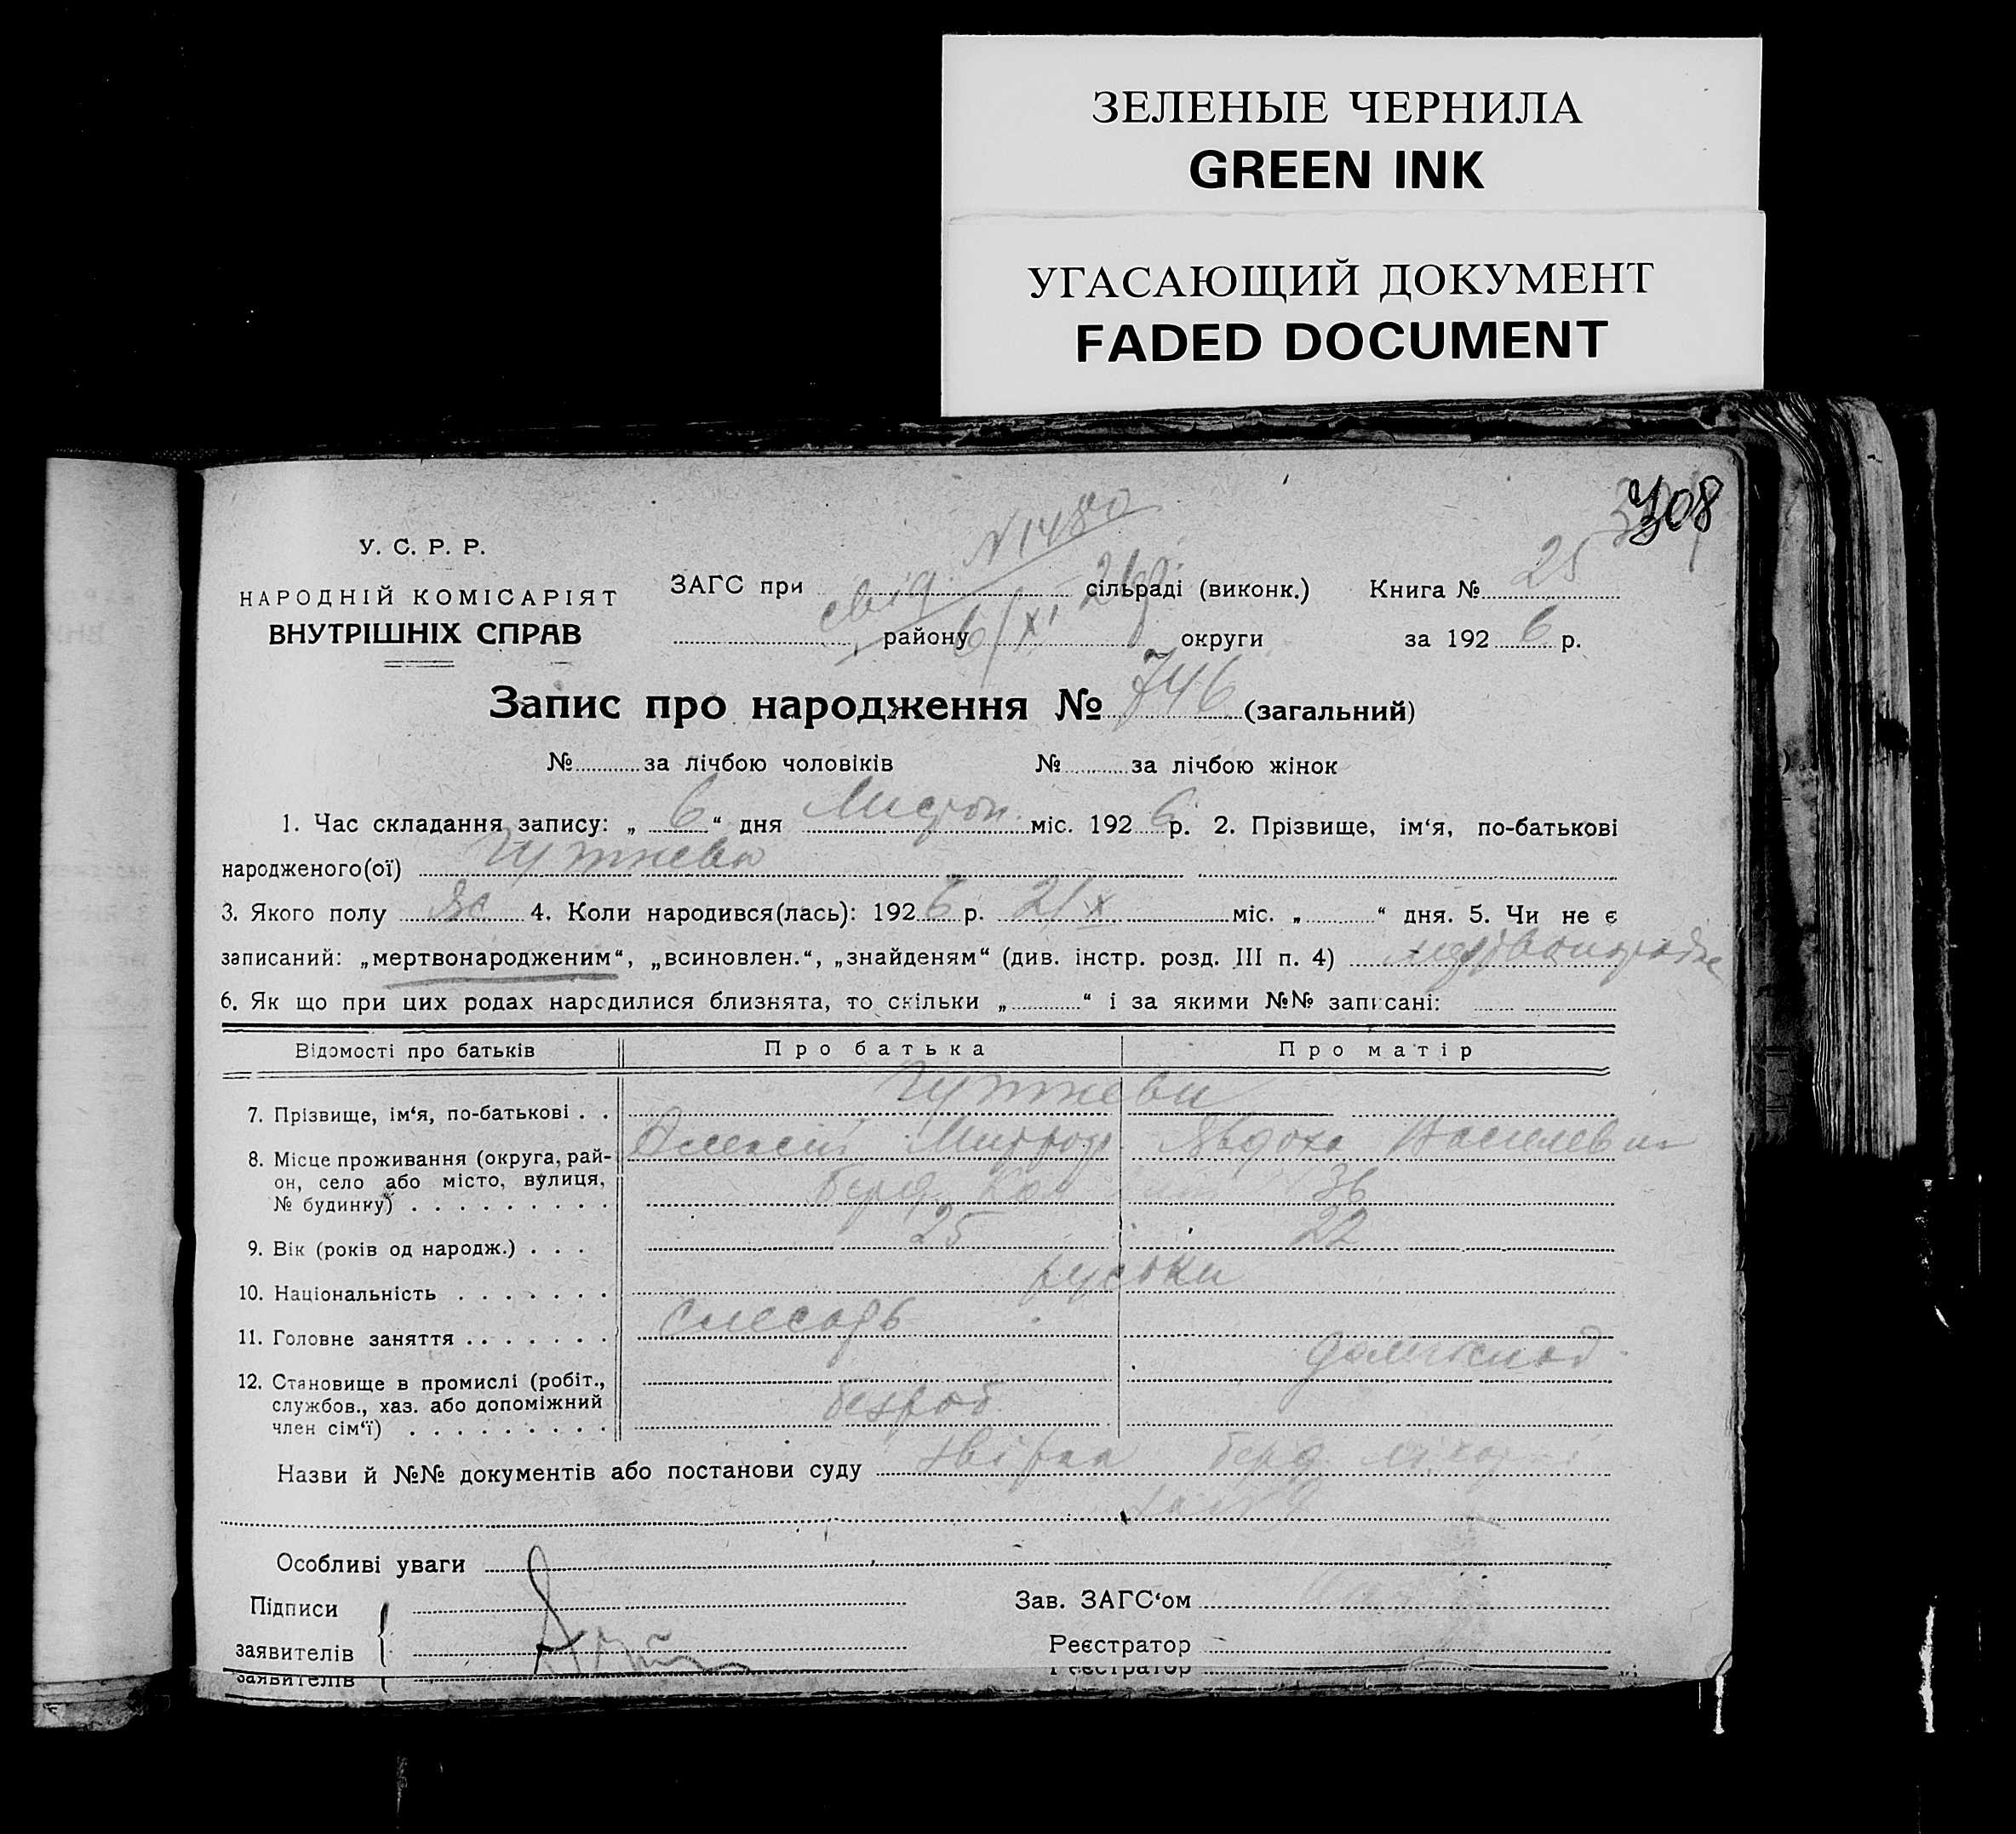 ЗЕЛЕНЫЕ ЧЕРНИЛА
GREEN INK
УГАСАЮЩИЙ ДОКУМЕНТ
FADED DOCUMENT
308
N 1480
У. С. Р. Р.
НАРОДНІЙ КОМІСАРІЯТ
ВНУТРІШНІХ СПРАВ
ЗАГС при свід. сільраді (виконк.) Книга № 25
району 6/XI 26р. округи за 192 6 р.
Запис про народження № 746 (загальний)
№ за лічбою чоловіків № за лічбою жінок
1. Час складання запису: „ 6 “ дня Листоп. міс. 192 6 р. 2. Прізвище, ім‘я, по-батькові
народженого(ої)
3. Якого полу жс 4. Коли народився(лась): 192 6 р. 21 X міс. „ “ дня. 5. Чи не є
записаний: „мертвонародженим“, „всиновлен.“, „знайденям“ (див. інстр. розд. III п. 4)
6. Як що при цих родах народилися близнята, то скільки „ “ і за якими №№ записані:
Відомості про батьків Про батька Про матір
7. Прізвище, ім‘я, по-батькові . .
Олексій Явдоха
8. Місце проживання (округа, рай-
он, село або місто, вулиця,
№ будинку) . . . . . . . . . Берд. 36
9. Вік (років од народж.) . . . 25 22
10. Національність . . . . . . . руськи
11. Головне заняття . . . . . . . слесарь
домгоспод.
12. Становище в промислі (робіт.,
службов., хаз. або допоміжний
член сім‘ї) . . . . . . . . . безроб
Назви й №№ документів або постанови суду берд.
Особливі уваги
Підписи Зав. ЗАГС‘ом
заявителів Реєстратор
заявителів Реєстратор